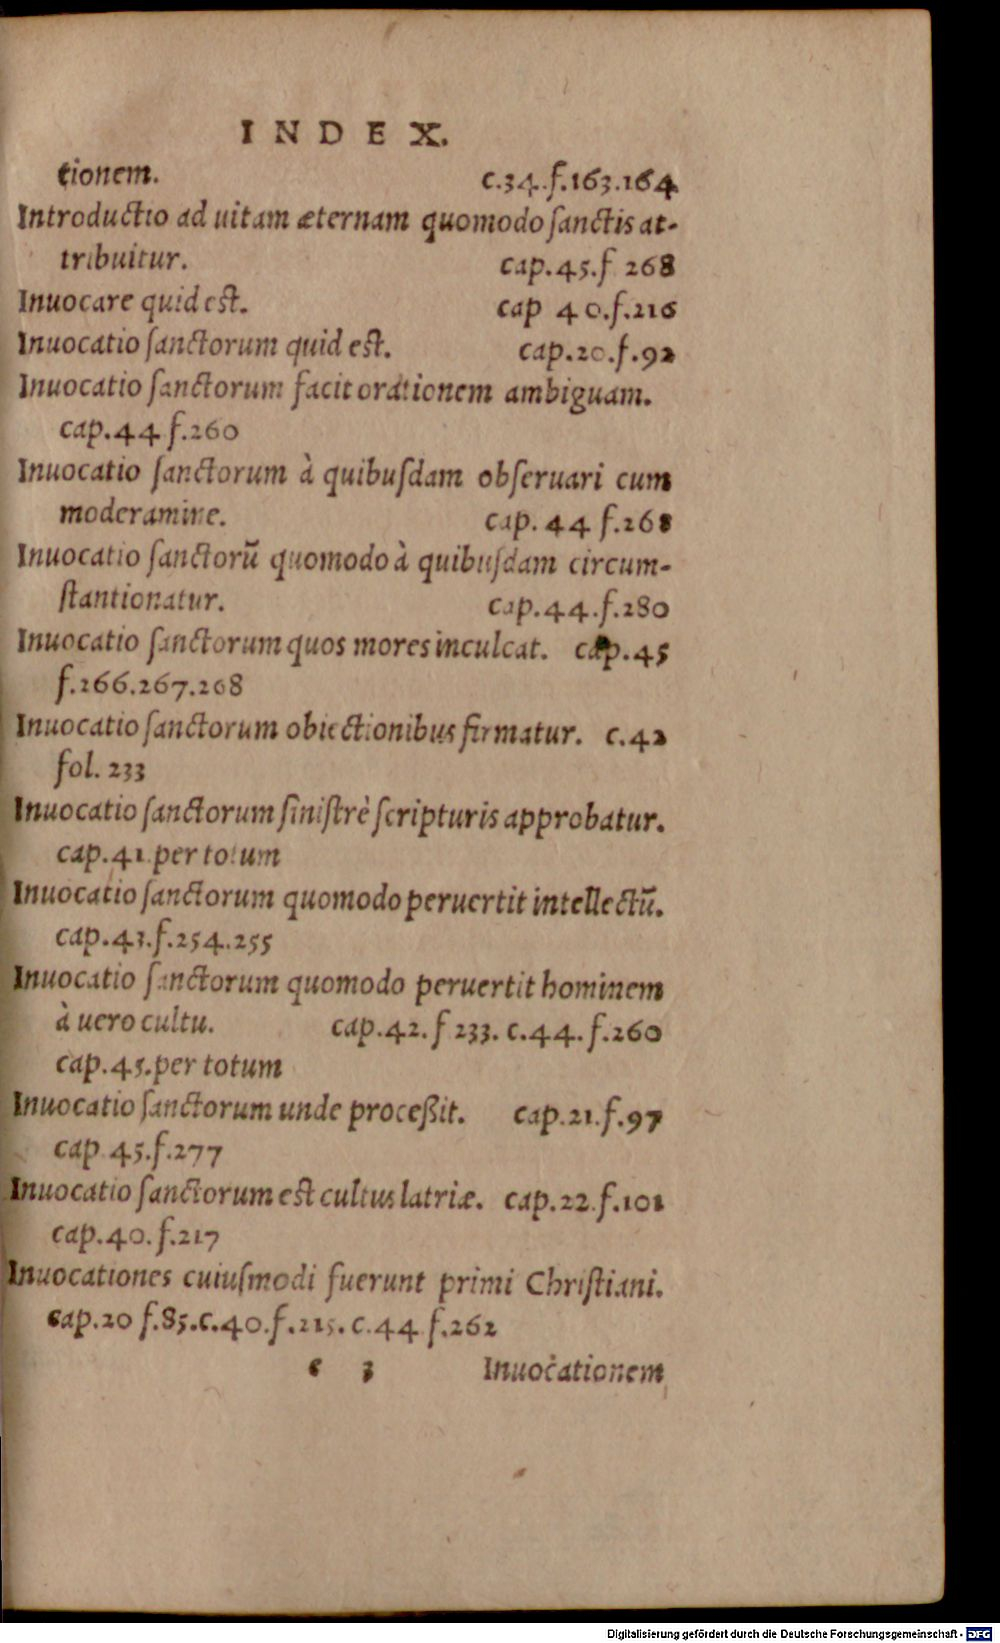 INDEX.
tionem. c.34.f.163.164
Introductio ad uitam æternam quomodo ſanctis at-
tribuitur. cap.45.f 268
Inuocare quid est. cap 40.f.216
Inuocatio ſanctorum quid est. cap.20.f.92
Inuocatio ſanctorum facit orationem ambiguam.
cap.44 f.260
Inuocatio ſanctorum à quibuſdam obſeruari cum
moderamine. cap. 44 f.268
Inuocatio ſanctorū quomodo à quibuſdam circum-
ſtantionatur. cap.44.f.280
Inuocatio ſanctorum quos mores inculcat. cap.45
f.266.267.268
Inuocatio ſanctorum obiectionibus firmatur. c.42
fol. 233
Inuocatio ſanctorum ſiniſtrè ſcripturis approbatur.
cap.41.per totum
Inuocatio ſanctorum quomodo peruertit intellectū.
cap.43.f.254.255
Inuocatio ſanctorum quomodo peruertit hominem
à uero cultu. cap.42. f 233. c.44. f.260
cap.45.per totum
Inuocatio ſanctorum unde proceßit. cap.21.f.97
cap 45.f.277
Inuocatio ſanctorum est cultus latriæ. cap.22.f.101
cap.40.f.217
Inuocationes cuiuſmodi fuerunt primi Chriſtiani.
cap.20 f.85.c.40.f.215.c.44 f.262
e 3 Inuocationem
Digitalisierung gefördert durch die Deutsche Forschungsgemeinschaft - DFG